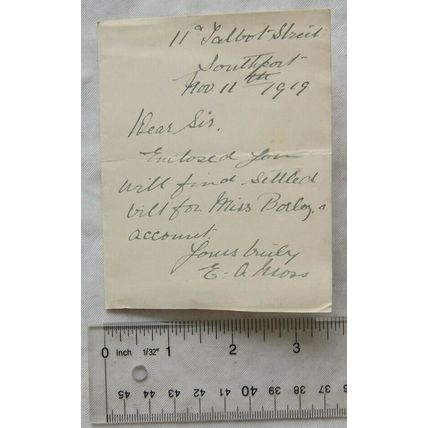 11a Talbot Street
Southport
Nov. 11th 1919
Dear Sir.
Enclosed you
will find settled
bill for Miss
account.
Yours truly
E. A Moss
0 Inch 1/32" 1 2 3
45 44 43 42 41 40 39 38 37 36